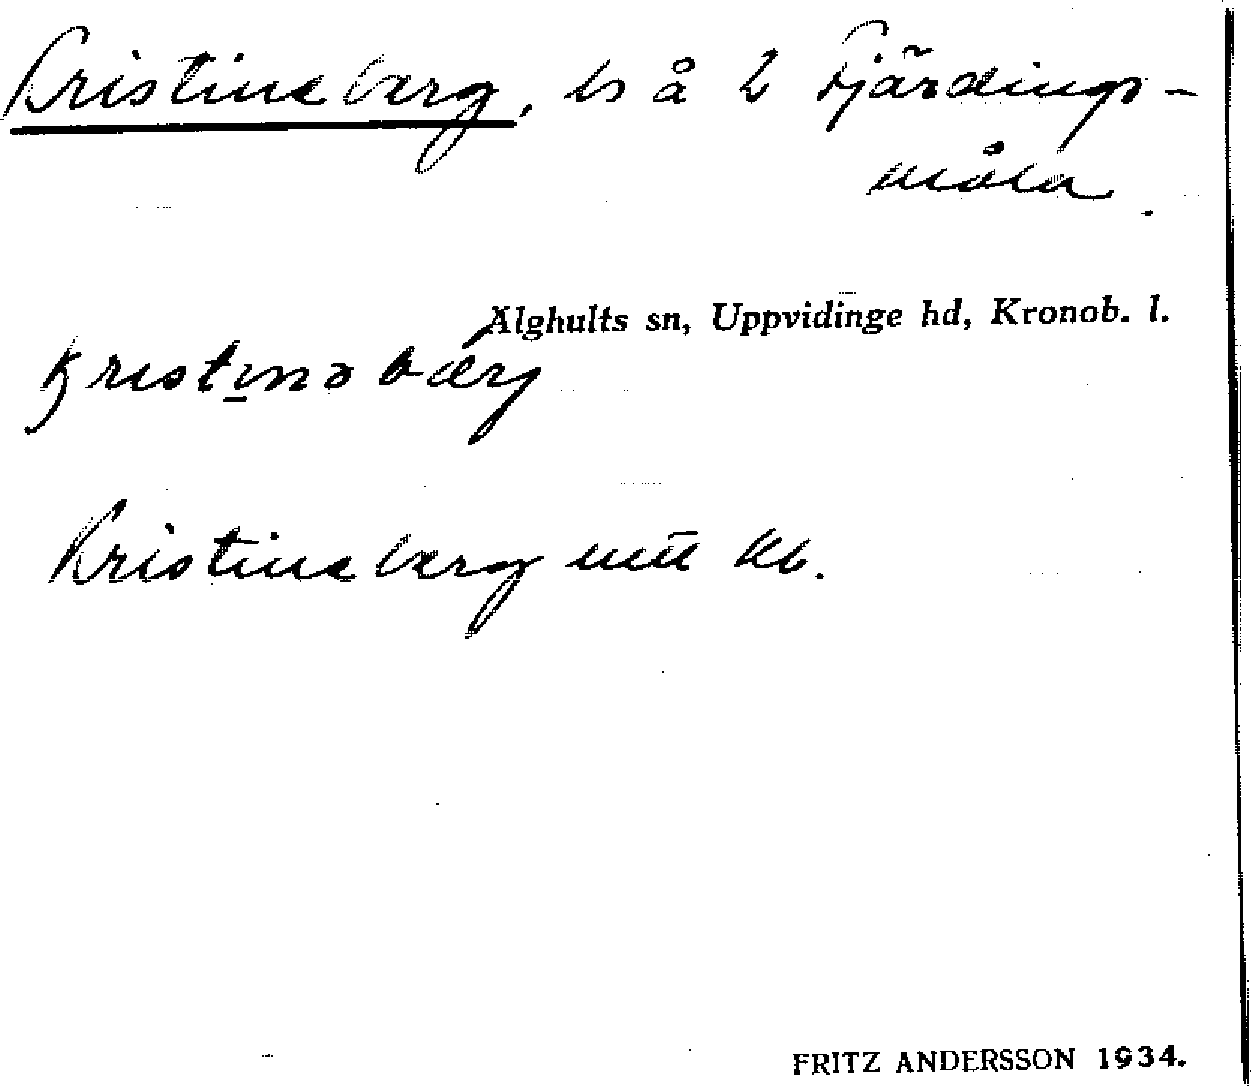 Kristineberg, ls å 2 Fjärdings-
måla.
Älghults sn, Uppvidinge hd, Kronob. l.
kristinəbærj
Kristineberg
FRITZ ANDERSSON 1934.